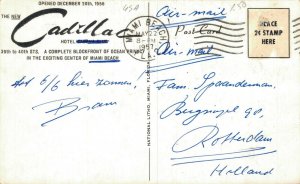 OPENED DECEMBER 14th, 1956
THE NEW
Cadillac
HOTEL
39th to 40th STS. A COMPLETE BLOCKFRONT OF OCEAN PRIVACY
IN THE EXCITING CENTER OF MIAMI BEACH
Air-mail
Post Card
Air-mail
MIAMI BEACH
1957
FLA.
PLACE
2¢ STAMP
HERE
tot 6/6 hier zonnen,
Bram
NATIONAL LITHO, MIAMI, FLORIDA
Fam. Spaanderman.
Bergsingel 90,
Rotterdam
Holland